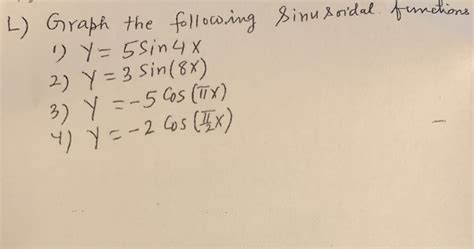 L) Graph the following Sinusoidal functions
1) Y = 5 Sin 4 x
2) Y = 3 Sin(8x)
3) Y = -5 Cos (πx)
4) Y = -2 Cos (π/2 x)